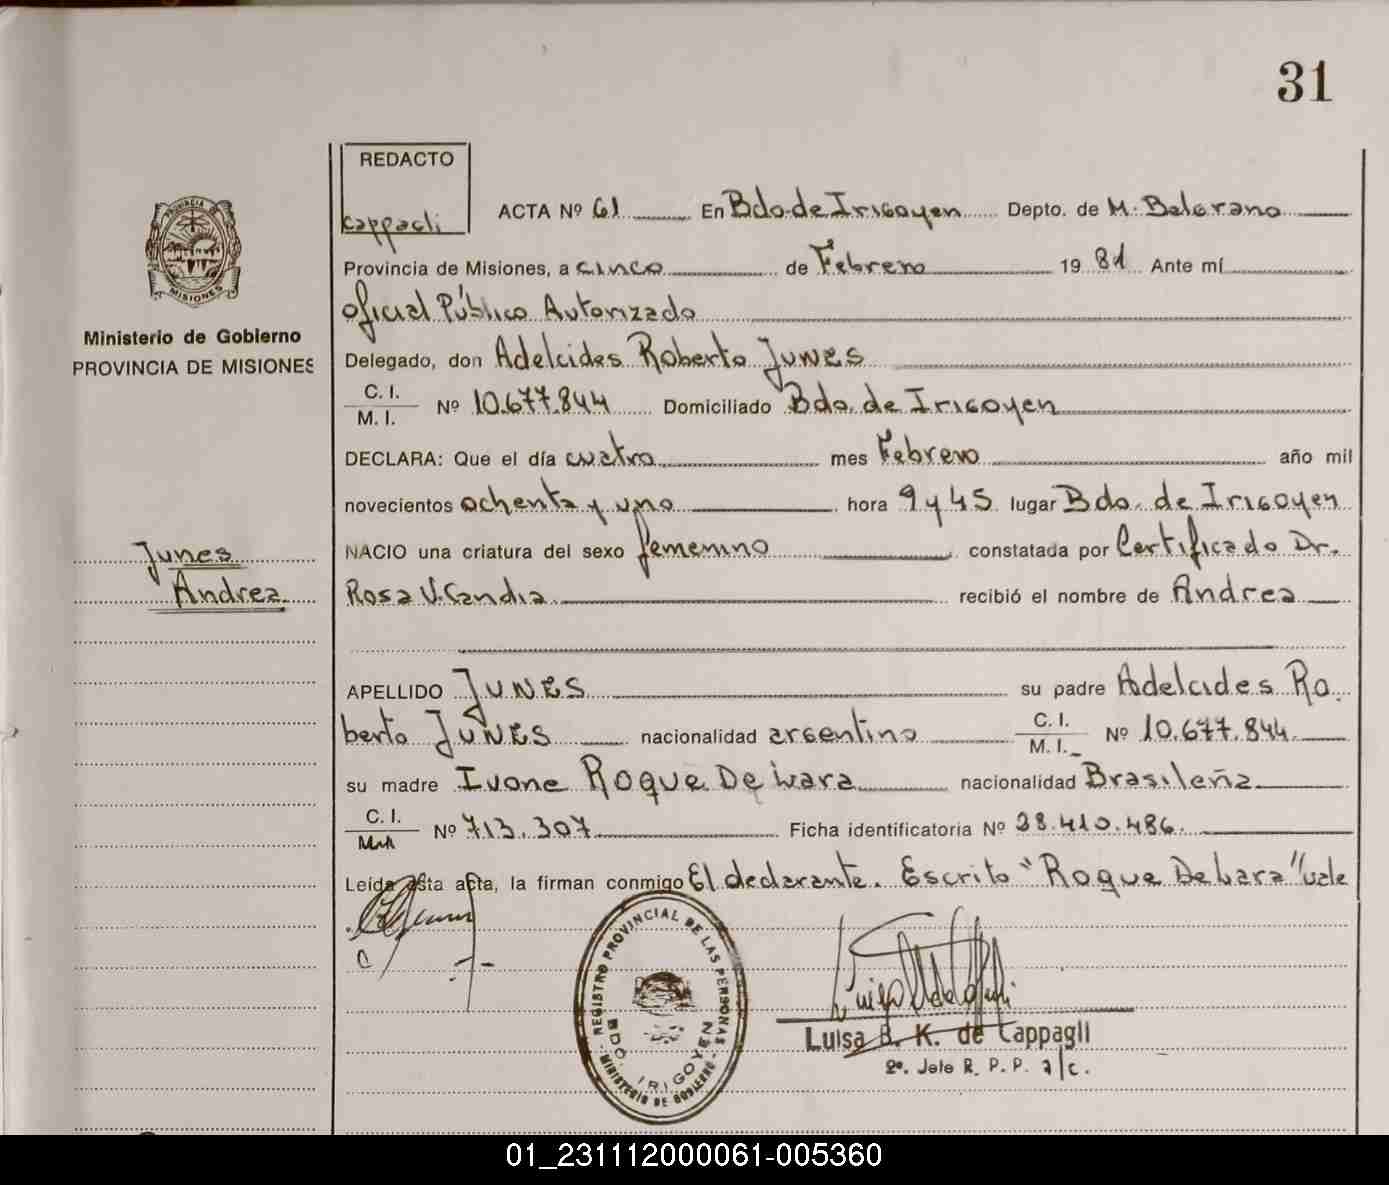 31
REDACTO
Cappagli
ACTA Nº 61 En Bdo. de Irigoyen Depto. de M. Belgrano
Provincia de Misiones, a cinco de Febrero 19 81 Ante mí
Oficial Público Autorizado
Delegado, don Adelcides Roberto JUNES
C. I.
M. I. Nº 10.677.844 Domiciliado Bdo. de Irigoyen
DECLARA: Que el día cuatro mes Febrero año mil
novecientos ochenta y uno hora 9 y 45 lugar Bdo. de Irigoyen
NACIO una criatura del sexo femenino constatada por Certificado Dr.
Rosa V. Candia recibió el nombre de Andrea
APELLIDO JUNES su padre Adelcides Ro
berto JUNES nacionalidad argentino C. I.
M. I. Nº 10.677.844
su madre Ivone Roque De Lara nacionalidad Brasileña
C. I.
Nº 713.307 Ficha identificatoria Nº 28.410.486.
Leída esta acta, la firman conmigo El declarante. Escrito "Roque De Lara" vale
PROVINCIA DE
MISIONES
Ministerio de Gobierno
PROVINCIA DE MISIONES
Junes
Andrea
REGISTRO PROVINCIAL DE LAS PERSONAS
MINISTERIO DE GOBIERNO
BDO. IRIGOYEN
Luisa B. K. de Cappagli
2º. Jefe R. P. P. a/c.
01_231112000061-005360